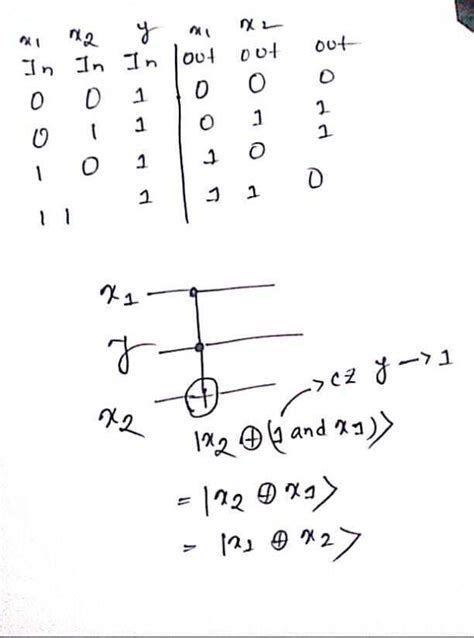 x1 x2 y x1 x2
In In In out out out
0 0 1 0 0 0
0 1 1 0 1 1
1 0 1 1 0 1
1 1 1 1 1 0
x1
y
x2
cz y → 1
|x2 ⊕ (1 and x1)⟩
= |x2 ⊕ x1⟩
= |x1 ⊕ x2⟩